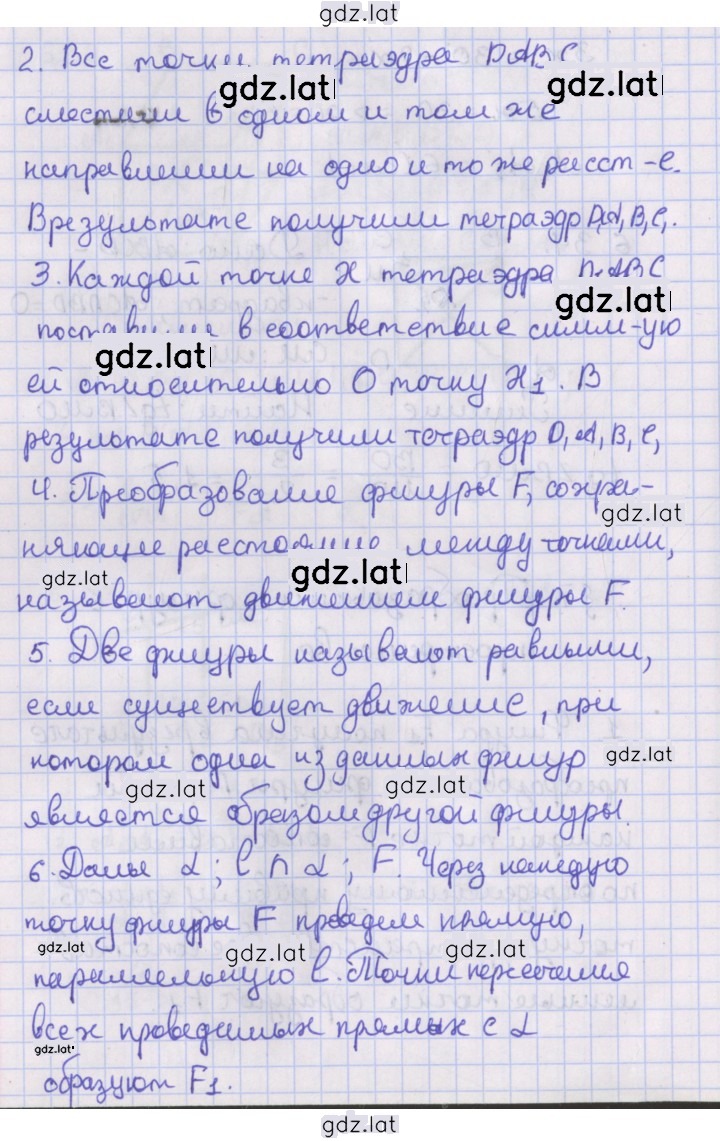 gdz.lat
2. Все точки тетраэдра DABC
gdz.lat gdz.lat
сместили в одном и том же
направлении на одно и то же расст-е.
В результате получили тетраэдр D₁A₁B₁C₁.
3. Каждой точке X тетраэдра DABC
gdz.lat
поставили в соответствие симм-ую
gdz.lat
ей относительно O точку X₁. В
результате получили тетраэдр D₁A₁B₁C₁
4. Преобразование фигуры F, сохра-
gdz.lat
няющее расстояние между точками,
gdz.lat gdz.lat
называют движением фигуры F.
5. Две фигуры называют равными,
если существует движение, при
котором одна из данных фигур
gdz.lat
gdz.lat gdz.lat
является образом другой фигуры.
6. Даны α; l ∩ α; F. Через каждую
точку фигуры F проведем прямую,
gdz.lat gdz.lat gdz.lat
параллельную l. Точки пересечения
всех проведенных прямых с α
gdz.lat
образуют F₁.
gdz.lat